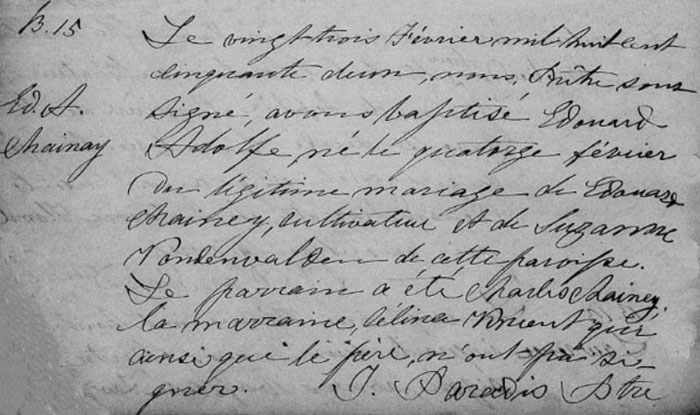 B. 15
Ed. A.
Chainay
Le vingt trois Février mil huit cent
cinquante deux, nous, Prêtre sous
signé, avons baptisé Edouard
Adolfe, né le quatorze février
du légitime mariage de Edouard
Chainey, cultivateur et de Suzanne
Vondenvalden de cette paroisse.
Le parrain a été Charles Chainey
la marraine, Célina Vincent qui
ainsi que le père, n'ont pu si-
gner. J. Paradis Ptre